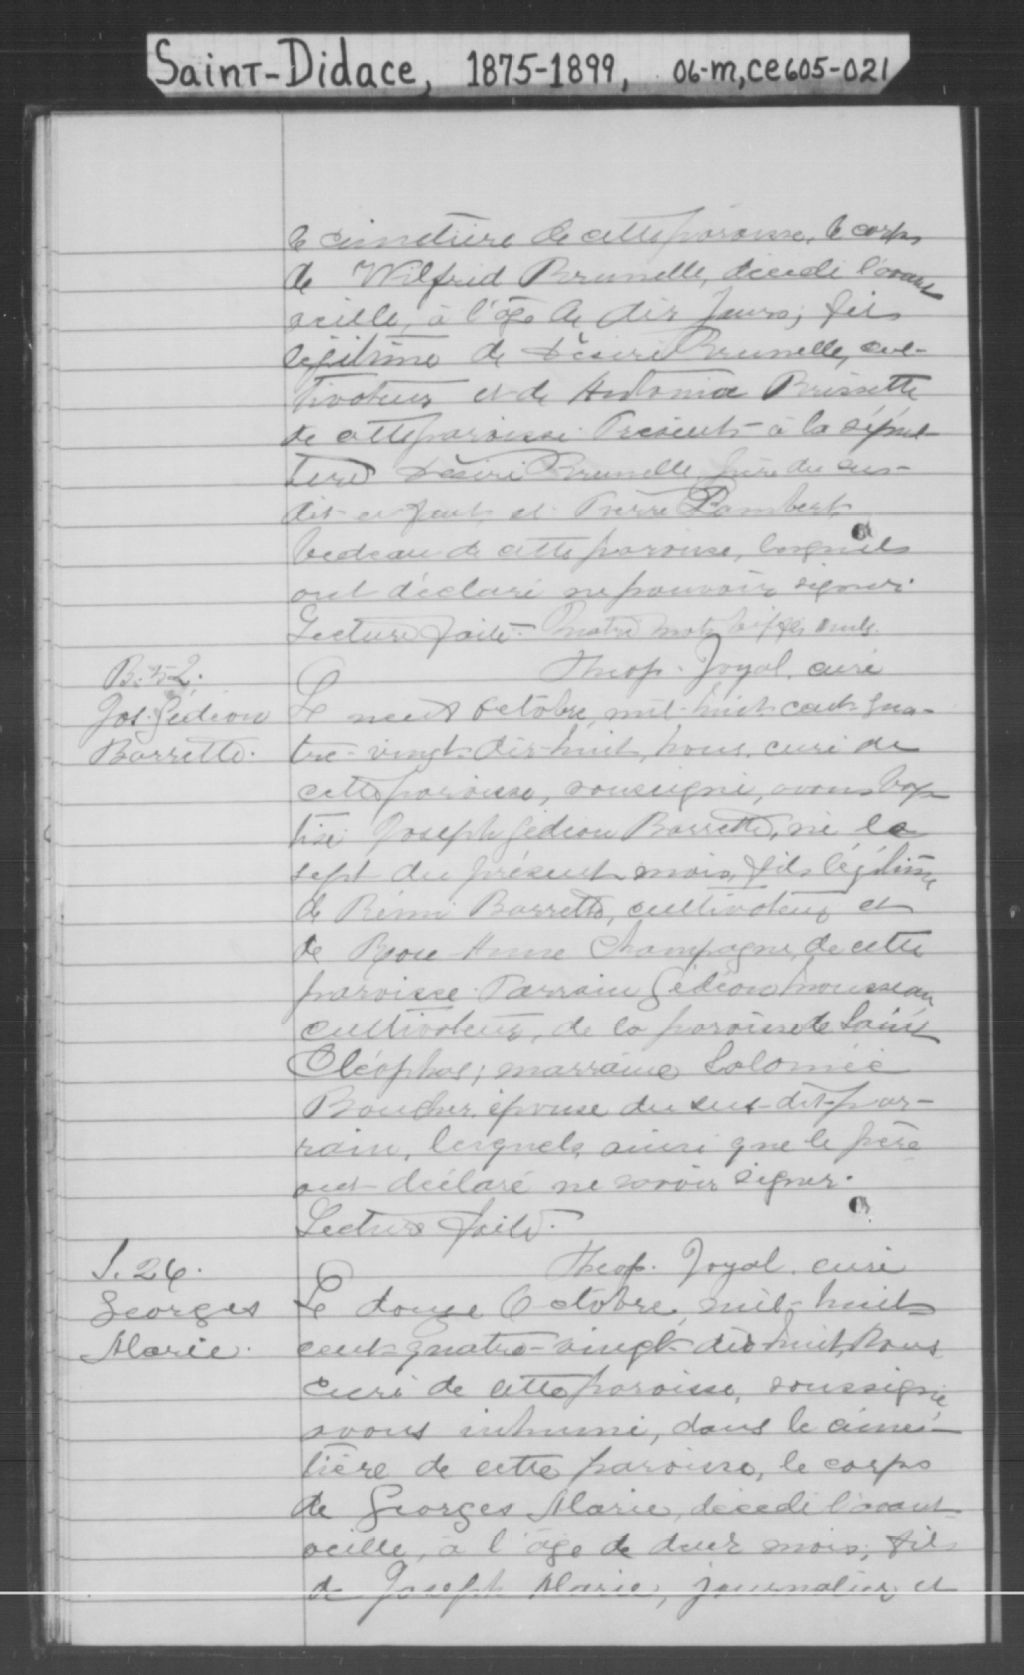 Saint-Didace, 1875-1899, 06-m,ce605-021
le cimetière de cette paroisse, le corps
de Wilfrid Brunelle, décédé l'avant
veille, à l'âge de dix jours; fils
légitime de Désiré Brunelle, cul-
tivateur et de Antonia Brissette
de cette paroisse. Présents à la sépul-
ture Désiré Brunelle père du sus-
dit enfant et Pierre Lambert
bedeau de cette paroisse, lesquels
ont déclaré ne pouvoir signer.
Lecture faite. quatre mots biffés nuls.
Theop. Joyal. curé
B. 52.
Jos. Gédéon
Barrette.
Le neuf Octobre, mil-huit cent qua-
tre-vingt-dix-huit, nous, curé de
cette paroisse, soussigné, avons bap-
tisé Joseph Gédéon Barrette, né le
sept du présent mois, fils légitime
de Rémi Barrette, cultivateur et
de Rose Anne Champagne, de cette
paroisse. Parrain Gédéon
cultivateur, de la paroisse de Saint
Cléophas; marraine Salomée
Boucher, épouse du sus-dit par-
rain, lesquels, ainsi que le père
ont déclaré ne savoir signer.
Lecture faite.
Theop. Joyal. curé
S. 26.
Georges
Marie.
Le douze Octobre, mil-huit
cent-quatre-vingt-dix huit, Nous
curé de cette paroisse, soussigné
avons inhumé, dans le cime-
tière de cette paroisse, le corps
de Georges Marie, décédé l'avant
veille, à l'âge de deux mois, fils
de Joseph Marie, journalier et